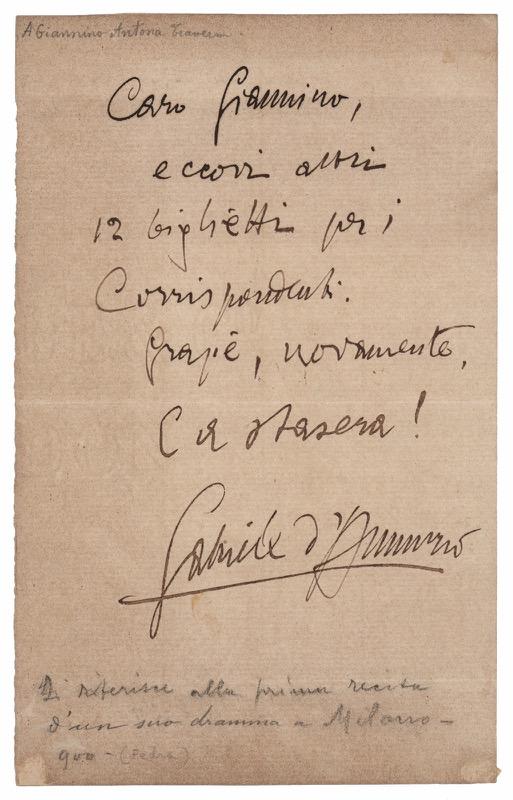 A Giannino Antona Traversi.
Caro Giannino,
eccovi altri
12 biglietti per i
Corrispondenti.
Grazie, novamente,
E a stasera!
Gabriele d'Annunzio
Si riferisce alla prima recita
d'un suo dramma a Milano –
900 – (Fedra)